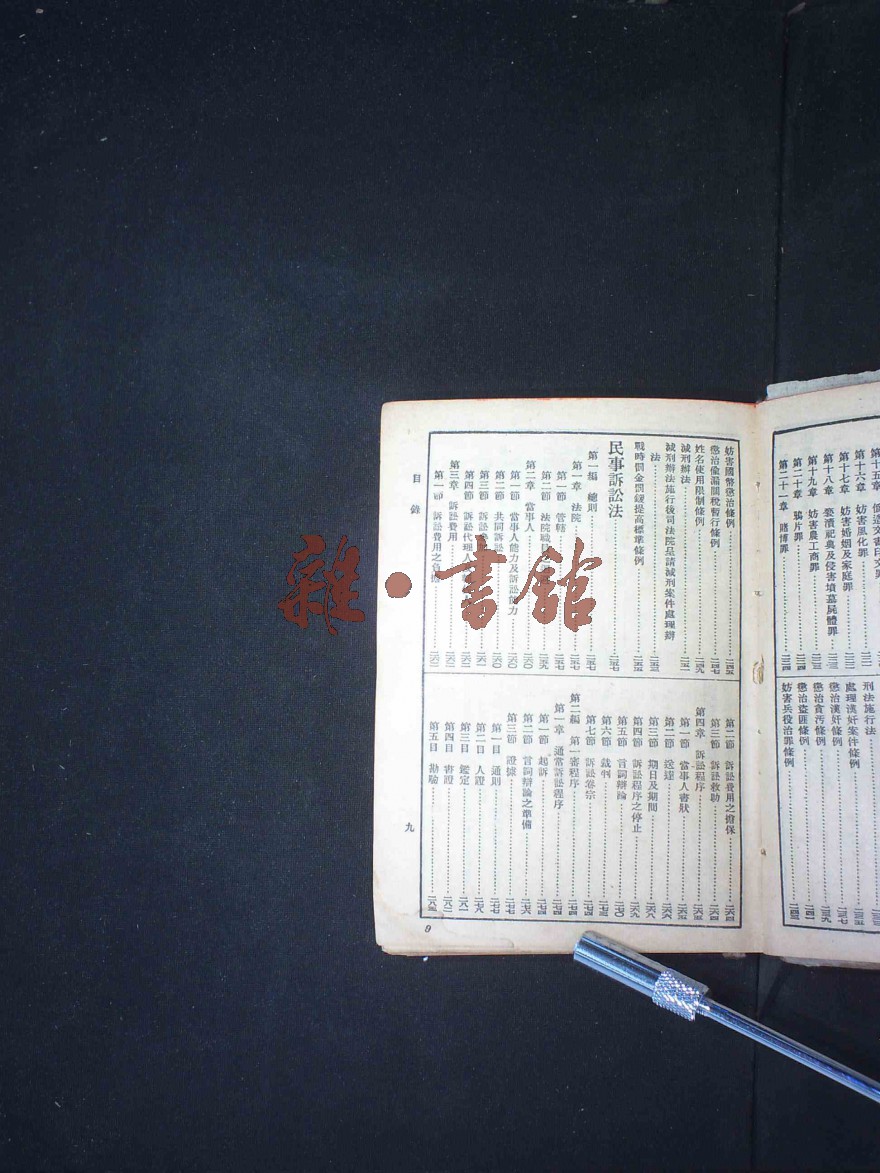 第十六章 妨害風化罪
第十七章 妨害婚姻及家庭罪
第十八章 褻瀆祀典及侵害墳墓屍體罪
第十九章 妨害農工商罪
第二十章 鴉片罪
第二十一章 賭博罪
刑法施行法
處理漢奸案件條例
懲治漢奸條例
懲治貪汚條例
懲治盜匪條例
妨害兵役治罪條例
妨害國幣懲治條例 二四五
懲治偸漏關稅暫行條例 二四七
姓名使用限制條例 二四九
減刑辦法 二五一
減刑辦法施行後司法院呈請減刑案件處理辦
法 二五三
戰時罰金罰鍰提高標準條例 二五五
民事訴訟法 二五七
第一編 總則 二五七
第一章 法院 二五七
第一節 管轄 二五七
第二節 法院職員 二五九
第二章 當事人 二六〇
第一節 當事人能力及訴訟能力 二六〇
第二節 共同訴訟 二六〇
第三節 訴訟 二六一
第四節 訴訟代理人 二六二
第三章 訴訟費用 二六二
第一節 訴訟費用之負擔 二六二
第二節 訴訟費用之擔保 二六四
第三節 訴訟救助 二六四
第四章 訴訟程序 二六五
第一節 當事人書狀 二六五
第二節 送達 二六六
第三節 期日及期間 二六八
第四節 訴訟程序之停止 二六九
第五節 言詞辯論 二七〇
第六節 裁判 二七三
第七節 訴訟卷宗 二七四
第二編 第一審程序 二七四
第一章 通常訴訟程序 二七四
第一節 起訴 二七四
第二節 言詞辯論之準備 二七六
第三節 證據 二七七
第一目 通則 二七七
第二目 人證 二七八
第三目 鑑定 二八一
第四目 書證 二八二
第五目 勘驗 二八三
目錄
九
9
雜·書館